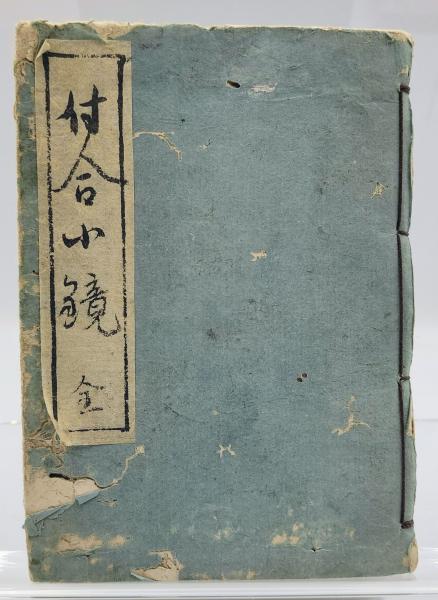 付合小鏡 全